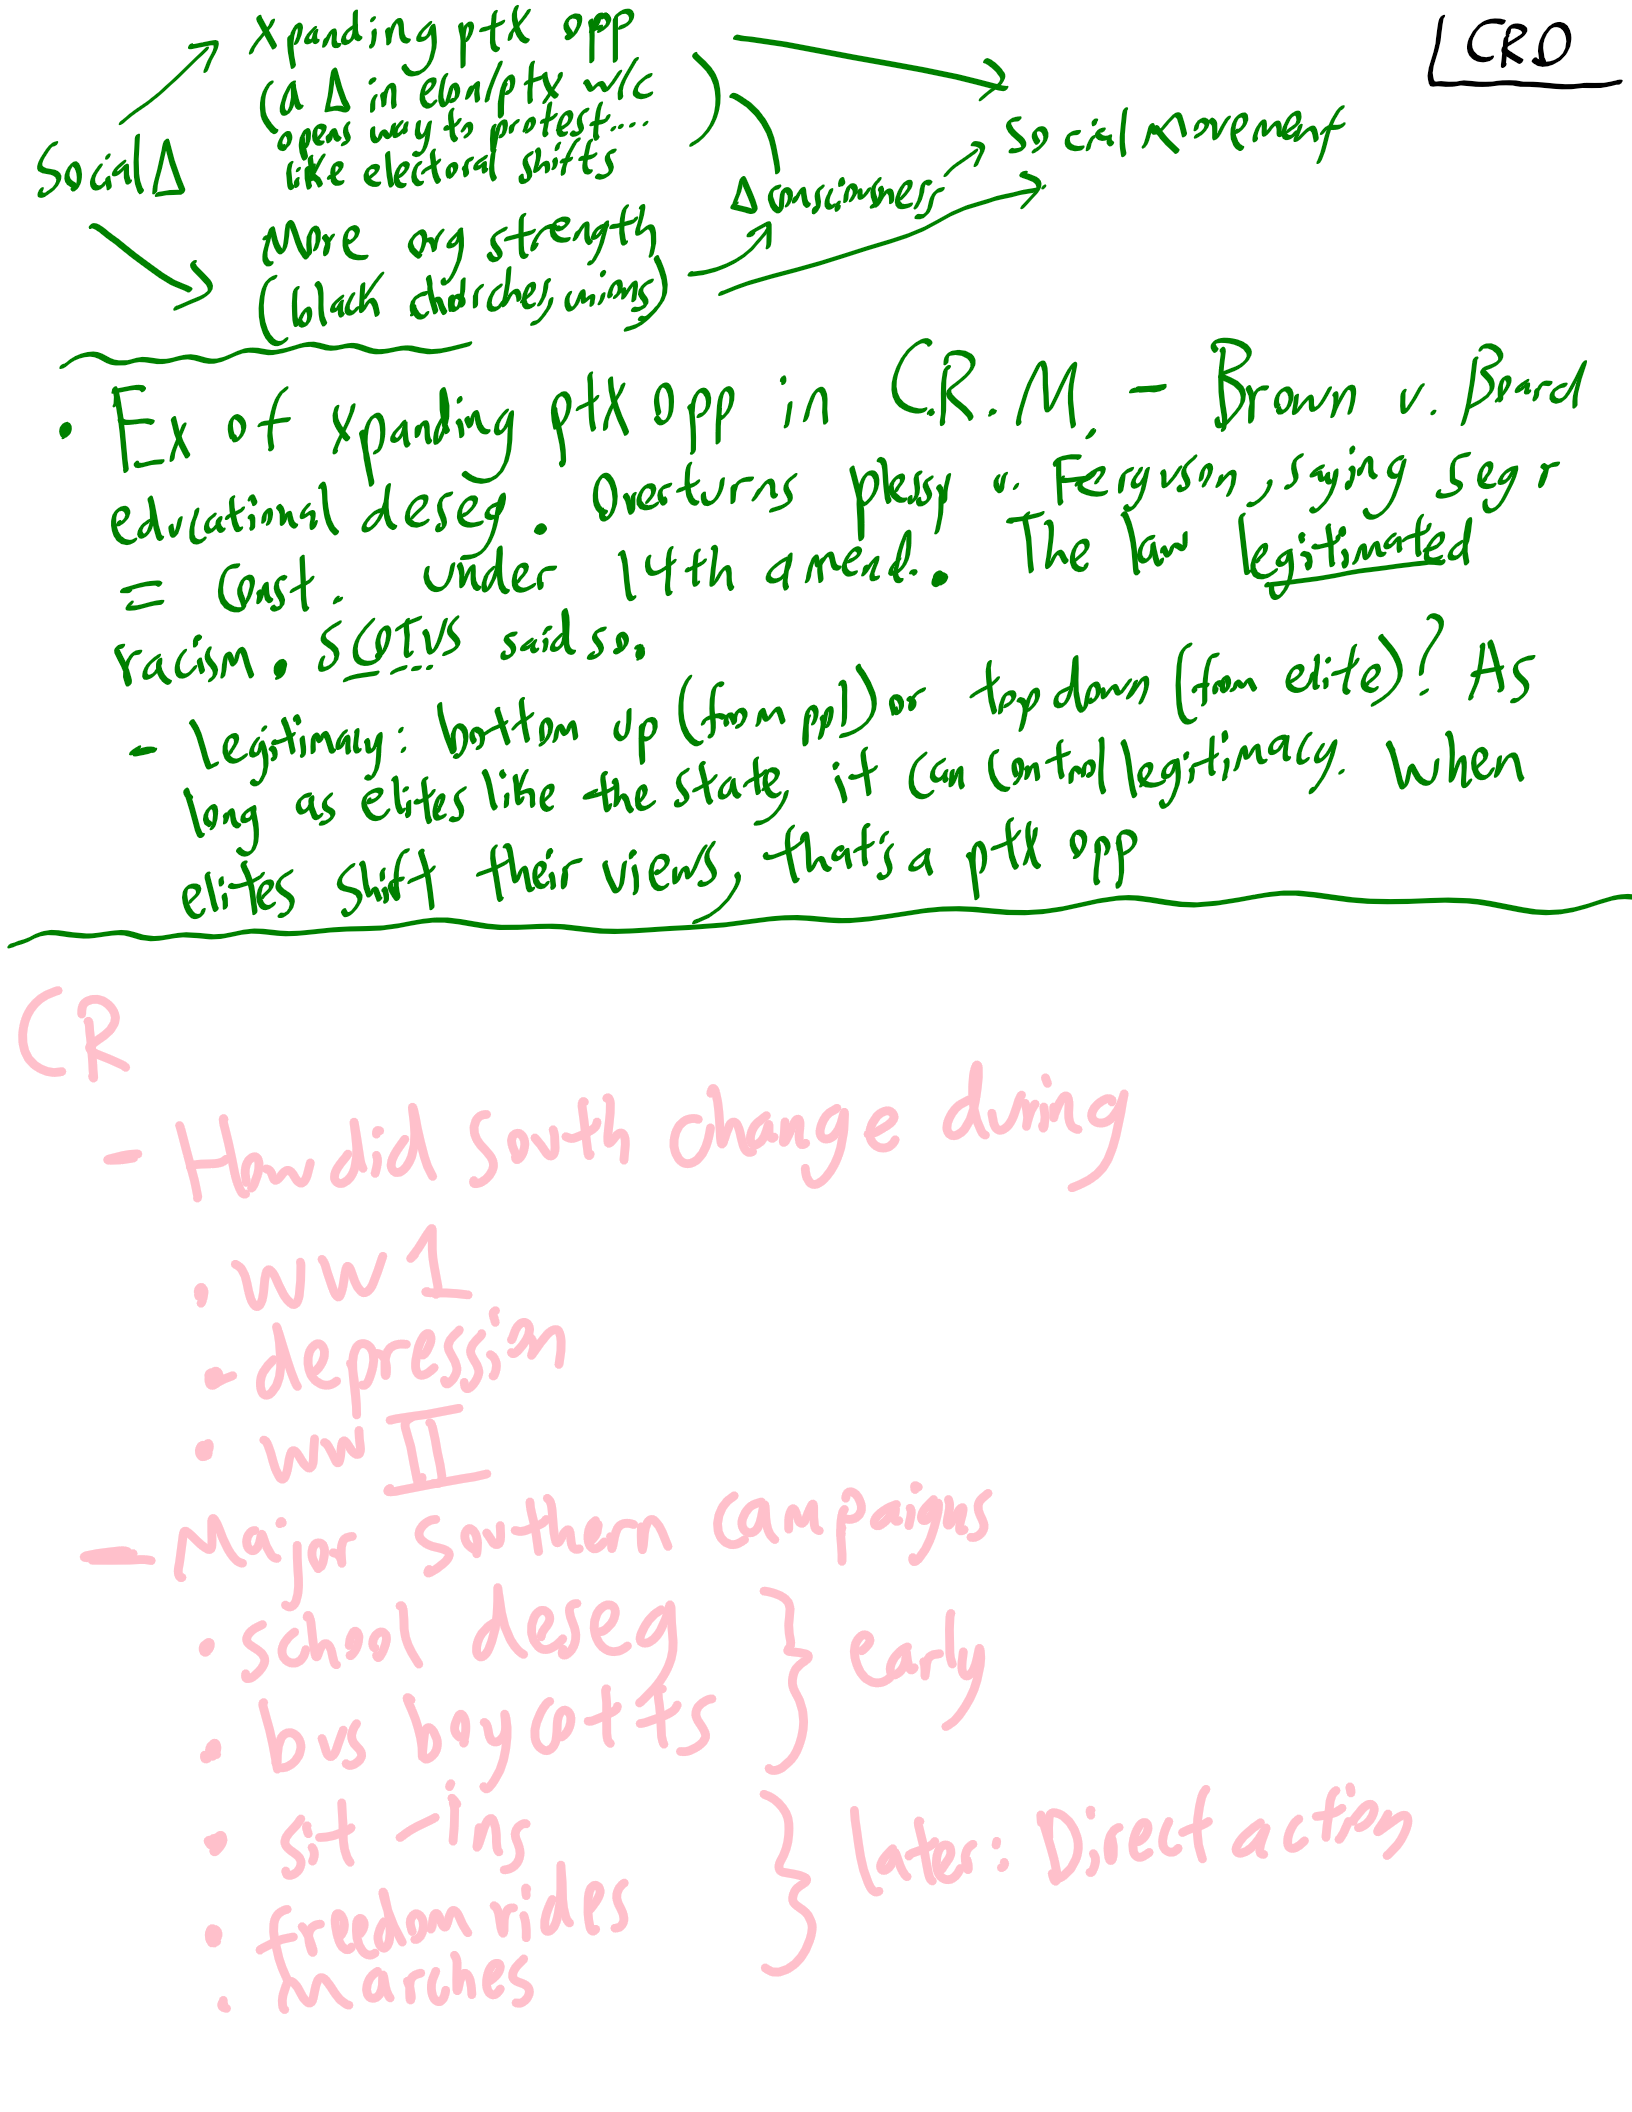 CRD
Xpanding ptX opp
(a Δ in econ/ptx w/c
opens way to protest....
like electoral shifts)
Social Δ
Social Movement
Δ consciousness
More org strength
(black churches, unions)
• Ex of Xpanding ptX opp in C.R.M. - Brown v. Board
educational deseg. Overturns plessy v. Ferguson, saying segr
= Const. under 14th amend.. The law legitimated
racism. SCOTUS said so.
- Legitimacy: bottom up (from ppl) or top down (from elite)? As
long as elites like the state, it can control legitimacy. When
elites shift their views, that's a ptX opp
CR
- How did South change during
• WW1
• depression
• WW II
- Major Southern Campaigns
• school deseg
• bus boycotts
early
• sit-ins
• freedom rides
• Marches
later: Direct action